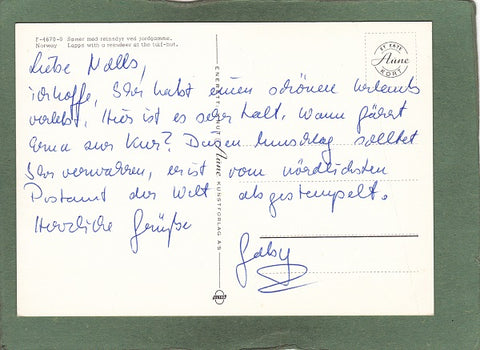 F-4670-6 Samer med reinsdyr ved jordgamme.
Norway Lapps with a reindeer at the turf-hut.
ET EKTE
Anne
KORT
Liebe Nalls,
ich hoffe, Ihr habt einen schönen Urlaub
verlebt. Hier ist es sehr kalt. Wann fährt
Erna zur Kur? Diesen Umschlag solltet
Ihr verwahren, er ist vom nördlichsten
Postamt der Welt abgestempelt.
Herzliche Grüße
Gaby
ENERETT:
Anne
KUNSTFORLAG AS